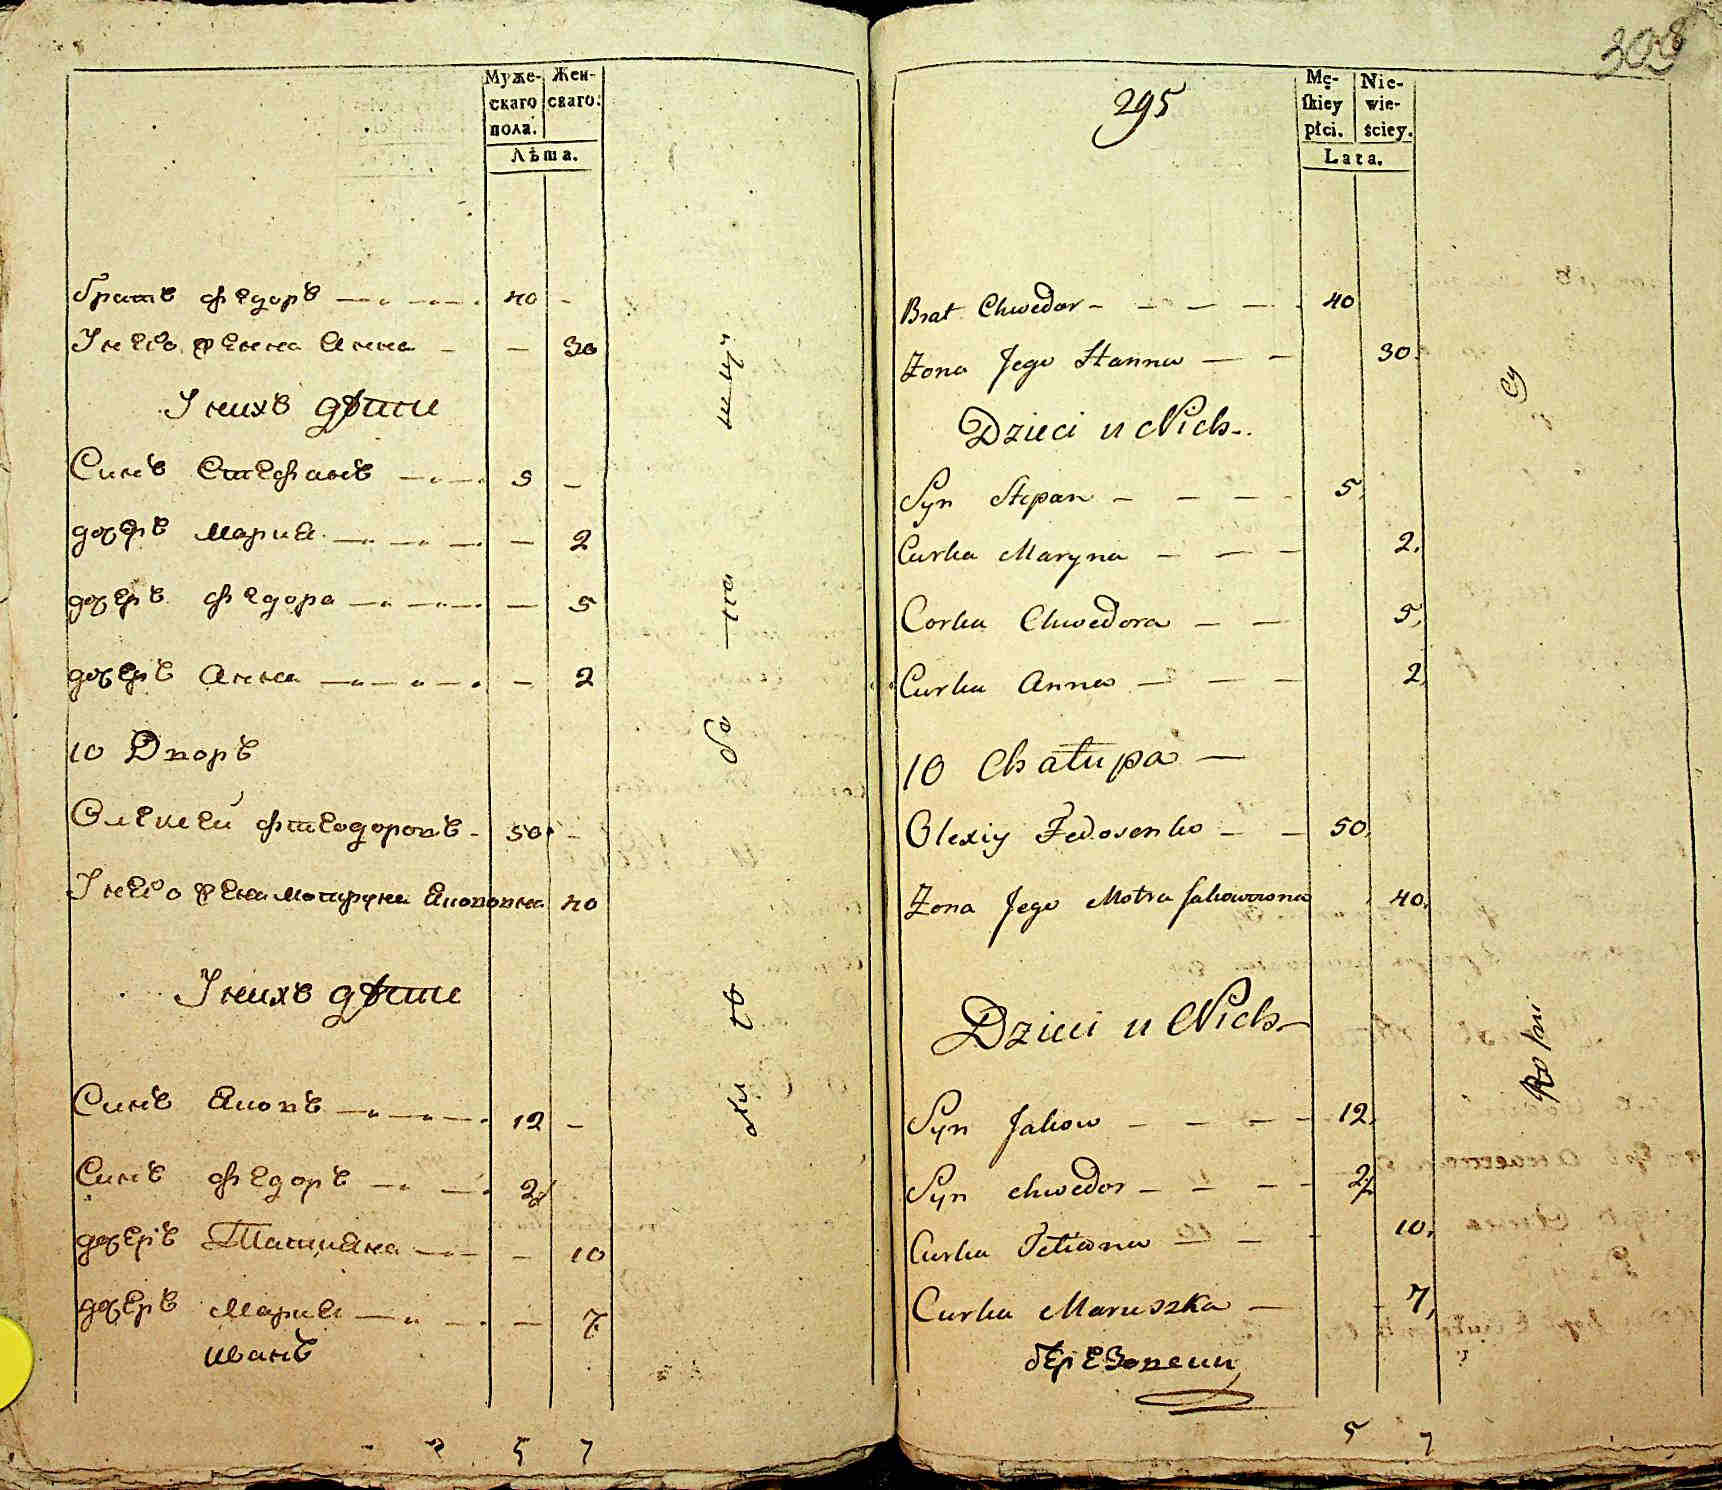 Муже-
скаго
пола.
Жен-
скаго.
Лѣта.
братъ федоръ 40 -
У него жена Анна - - 30
У нихъ дѣти
Синъ Стефанъ 5 -
дочеръ Мария - 2
дочеръ федора - 5
дочеръ Анна - 2
10 Дворъ
Олексей Фтеодоровъ - 50 -
У него жена мотруна Якововна 40
У нихъ дѣти
Синъ Яковъ 12 -
Синъ федоръ 2
дочеръ Татияна - 10
дочеръ Мария - 7
иванъ
5 7
308
295
Mę-
skiey
płci.
Nie-
wie-
ściey.
Lata.
Brat Chwedor - - - - - 40
Żona Jego Hanna - - 30.
Dzieci u Nich -
Syn Stepan - - - - 5.
Curka Maryna - - - 2.
Corka Chwedora - - 5.
Curka Anna - - - 2.
10 Chałupa -
Olexiy Fedosenko - - 50.
Żona Jego Motra Jakowowna 40.
Dzieci u Nich -
Syn Jakow - - - - 12.
Syn chwedor - - - - 2
Curka Tetiana - - - 10.
Curka Maruszka - - 7.
березовски
5 7